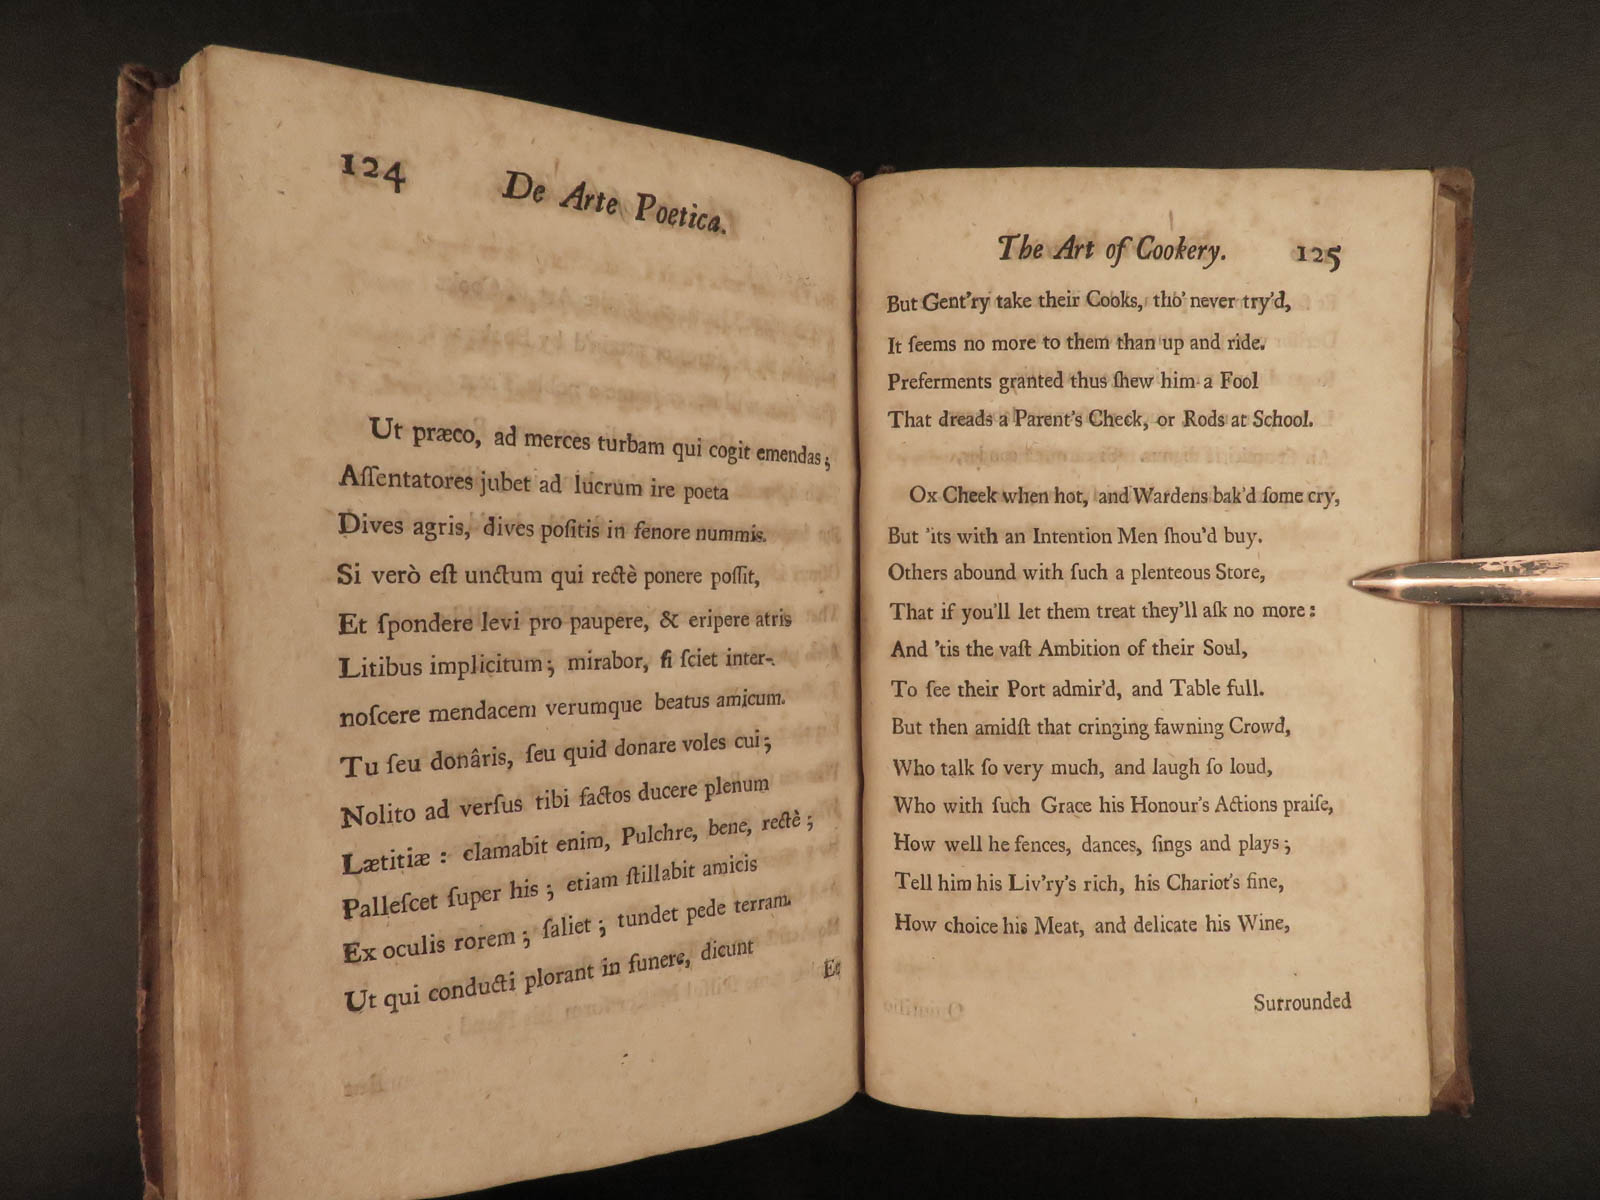 124
De Arte Poetica.
Ut præco, ad merces turbam qui cogit emendas;
Aſſentatores jubet ad lucrum ire poeta
Dives agris, dives poſitis in fenore nummis.
Si verò eſt unctum qui rectè ponere poſſit,
Et ſpondere levi pro paupere, & eripere atris
Litibus implicitum; mirabor, ſi ſciet inter-
noſcere mendacem verumque beatus amicum.
Tu ſeu donâris, ſeu quid donare voles cui;
Nolito ad verſus tibi factos ducere plenum
Lætitiæ: clamabit enim, Pulchre, bene, rectè;
Palleſcet ſuper his; etiam ſtillabit amicis
Ex oculis rorem; ſaliet; tundet pede terram.
Ut qui conducti plorant in funere, dicunt
Et
The Art of Cookery. 125
But Gent'ry take their Cooks, tho' never try'd,
It ſeems no more to them than up and ride.
Preferments granted thus ſhew him a Fool
That dreads a Parent's Check, or Rods at School.
Ox Cheek when hot, and Wardens bak'd ſome cry,
But 'its with an Intention Men ſhou'd buy.
Others abound with ſuch a plenteous Store,
That if you'll let them treat they'll aſk no more:
And 'tis the vaſt Ambition of their Soul,
To ſee their Port admir'd, and Table full.
But then amidſt that cringing fawning Crowd,
Who talk ſo very much, and laugh ſo loud,
Who with ſuch Grace his Honour's Actions praiſe,
How well he fences, dances, ſings and plays;
Tell him his Liv'ry's rich, his Chariot's fine,
How choice his Meat, and delicate his Wine,
Surrounded